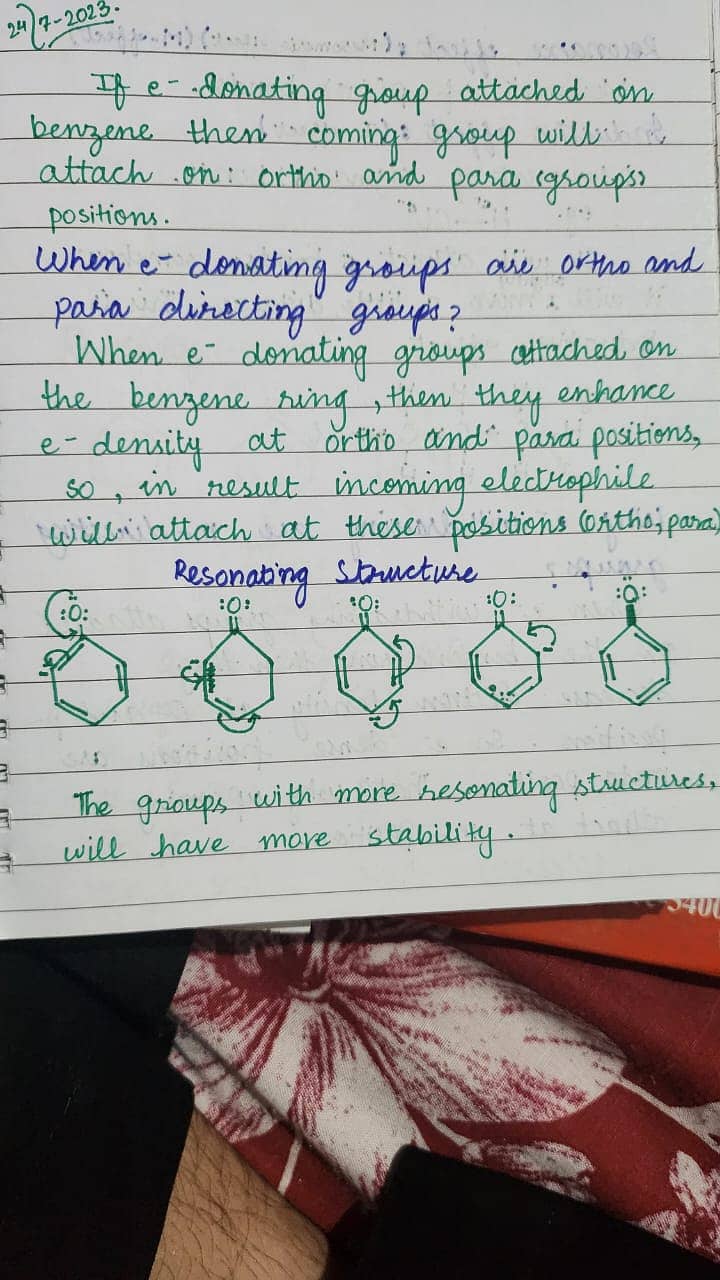 24/7-2023.
If e- donating group attached on
benzene then coming group will
attach on: ortho and para (groups)
positions.
When e- donating groups are ortho and
para directing groups?
When e- donating groups attached on
the benzene ring, then they enhance
e- density at ortho and para positions,
so, in result incoming electrophile
will attach at these positions (ortho, para)
Resonating Structure
:Ö: :O: :O: :O: :Ö:
The groups with more resonating structures,
will have more stability.
5400